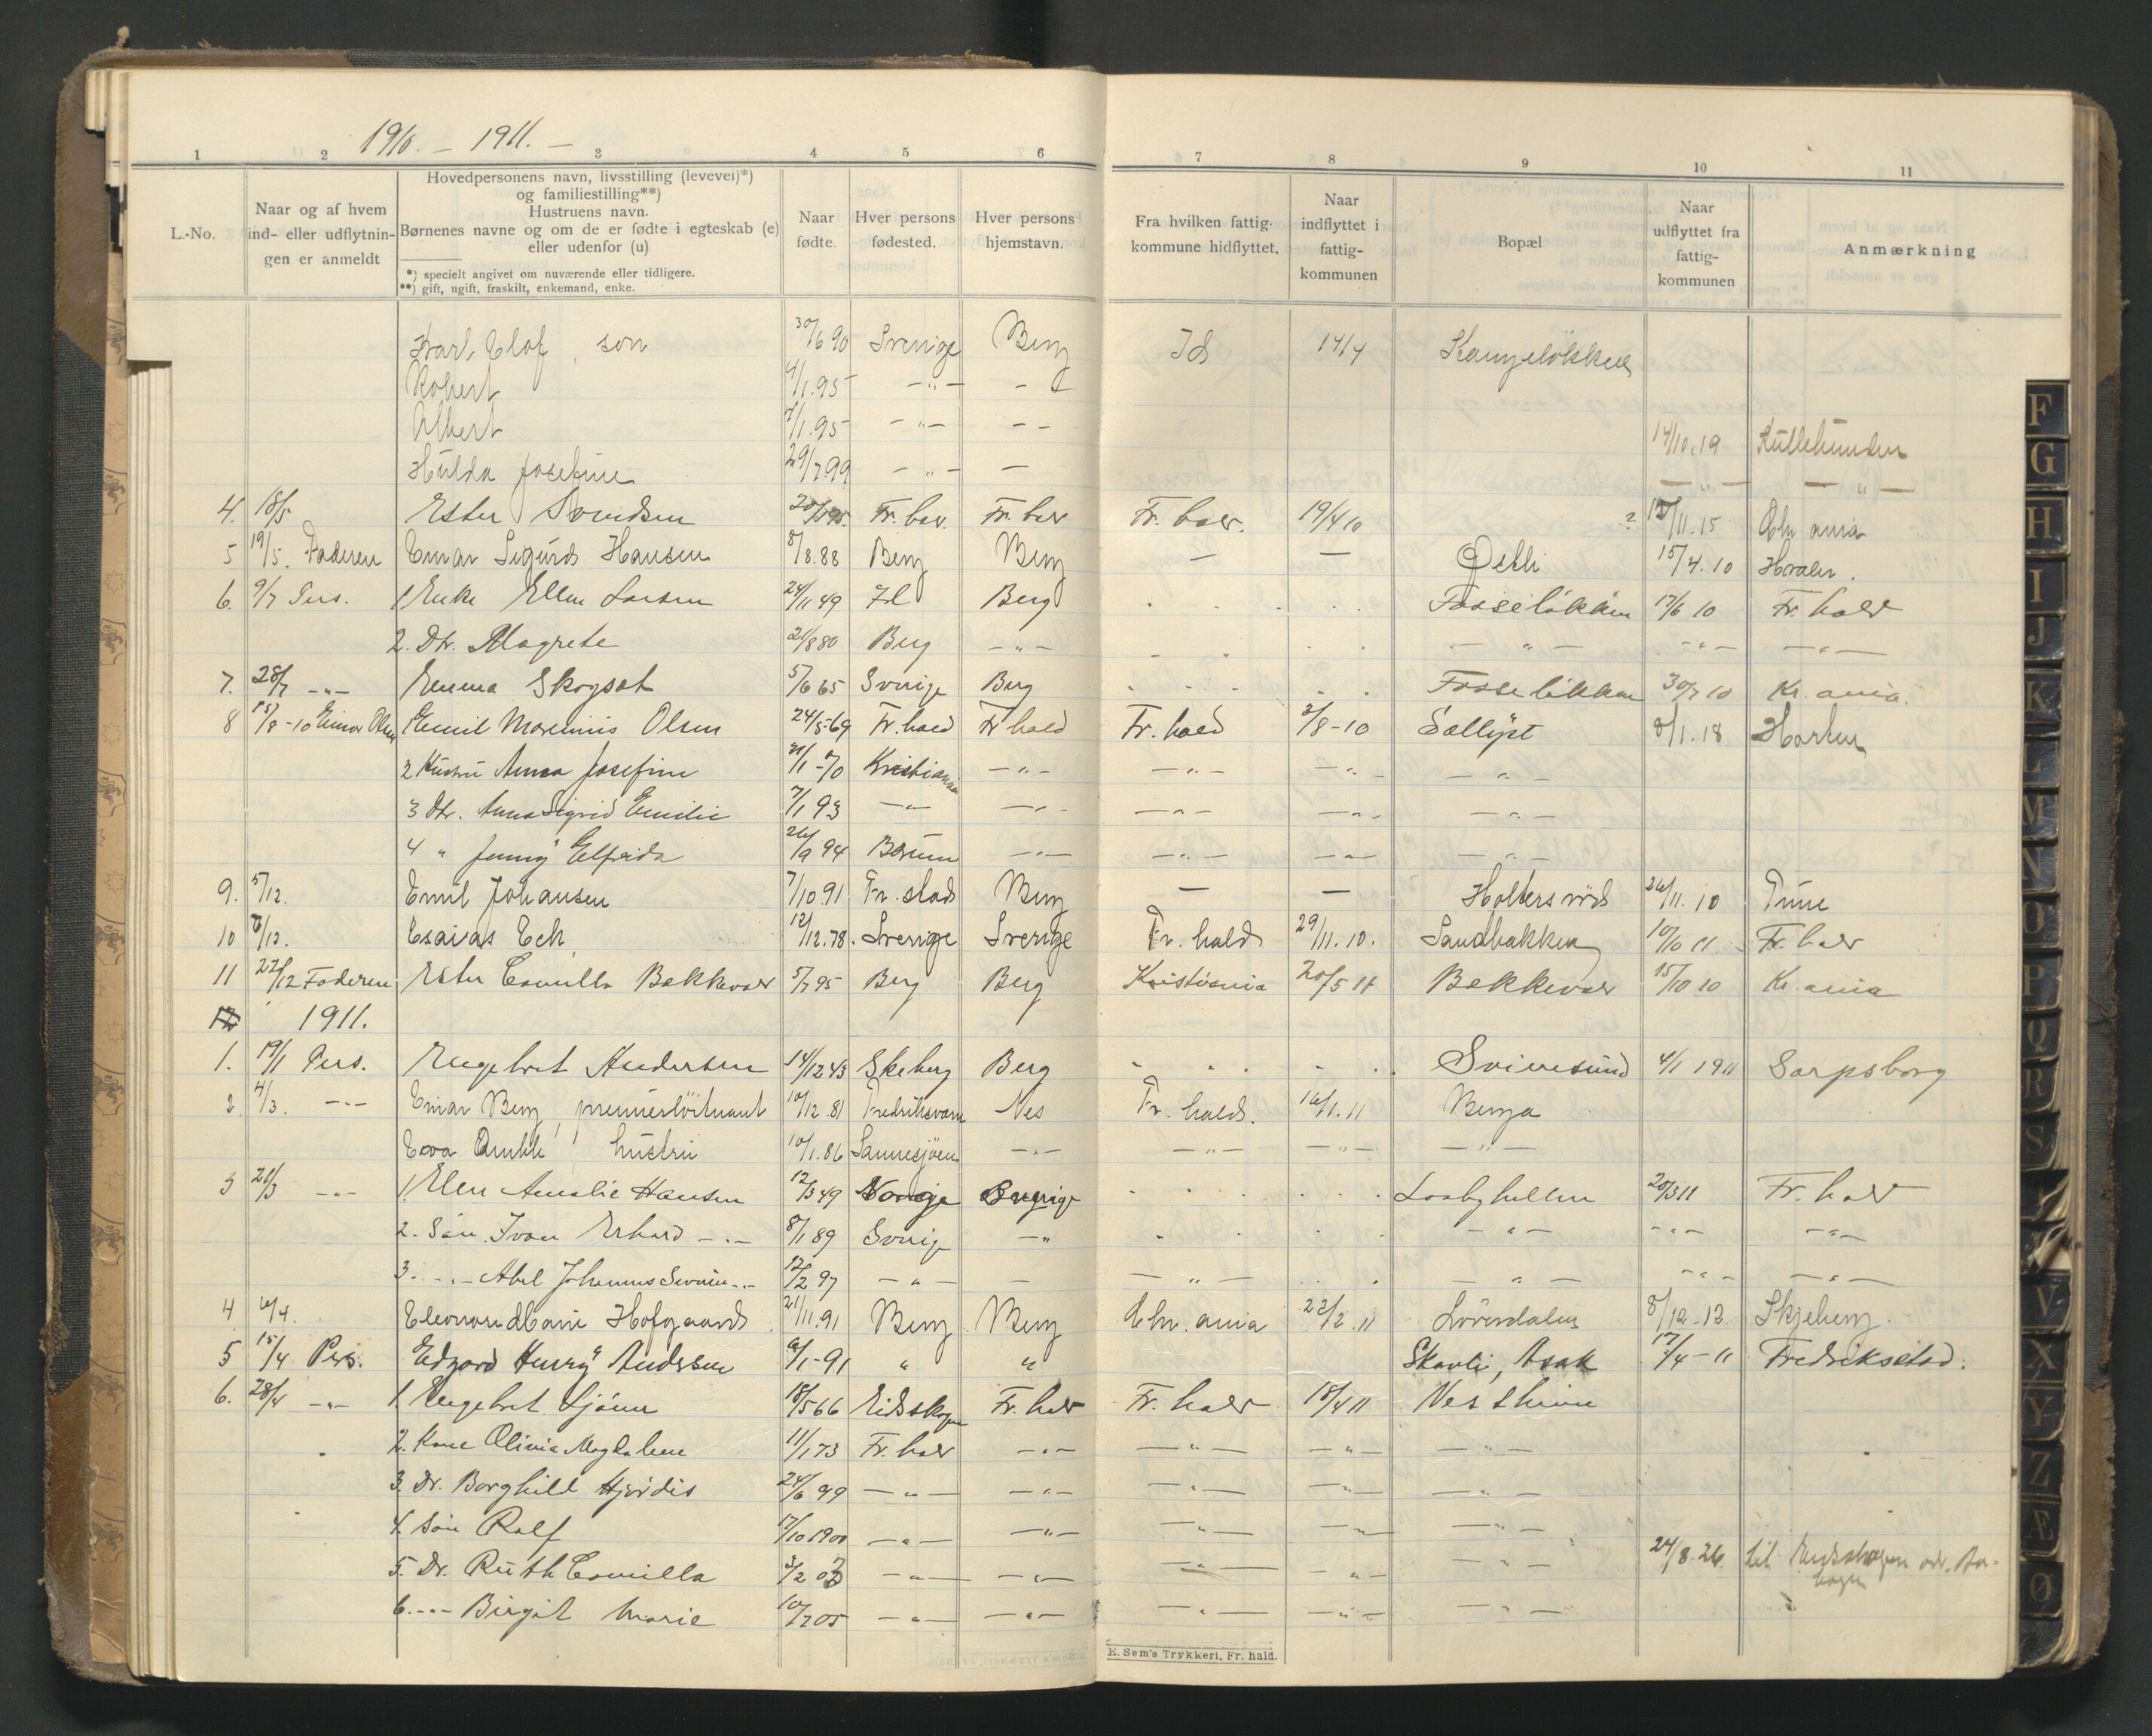 1910. – 1911. –
1 2 3 4 5 6 7 8 9 10 11
L.-No.
Naar og af hvem ind- eller udflytnin- gen er anmeldt
Hovedpersonens navn, livsstilling (levevei)*)
og familiestilling**)
Hustruens navn.
Børnenes navne og om de er fødte i egteskab (e)
eller udenfor (u)
*) specielt angivet om nuværende eller tidligere.
**) gift, ugift, fraskilt, enkemand, enke.
Naar fødte.
Hver persons fødested.
Hver persons hjemstavn.
Fra hvilken fattig- kommune hidflyttet.
Naar indflyttet i fattig- kommunen
Bopæl
Naar udflyttet fra fattig- kommunen
Anmærkning
Karl Olof, son 30/6 90 Sverige Berg Id 14/4
Robert 4/1.95 – " – –
Albert 7/1.95 – " – – – 14/10.19
Hulda Josefine 29/7.99 – " – – – " – – " –
4. 18/5 Ester Svendsen Fr. hal. Fr. hal Fr. hal. 19/4 10 ? 11.15 Chr ania
5 19/5. Faderen Einar Sigurd Hansen 8/8.88 Berg Berg – – 15/4.10 Hvaler.
6. 9/7 Pers. 1 Enke Ellen Larsen 24/11 49 Id Berg Fosseløkken 17/6 10 Fr. hald
2. Dtr. Magrete 21/8 80 Berg – " – – " – – " – – " –
7. 28/7 – " – Emma Skogsat 5/6 65 Sverige Berg Fosseløkken 30/7 10 Kr. ania.
8 15/8 – 10 Einar Olsen 1 Emil Maximus Olsen 24/5-69 Fr. hald Fr hald Fr. hald 3/8 – 10 Sollyst 8/1.18 Horten
2 Hustru Anna Josefine /1 – 70 Kristiania – " – – " – – " – – " –
3 Dtr. Anna Sigrid Emilie 7/1 93 – " – – " – – " – – " – – " –
4 " Jenny Elfrida 26/9 94 Bærum – " – – " – – " – – " –
9. 5/12. Emil Johansen 7/10.91 Fr. stad Berg – – Holtersrød 26/11.10 Tune
10 8/12. Esaias Eek 12/12.78. Sverige Sverige Fr. hald 29/11.10. Sandbakken 10/10 11. Fr. hal
11 22/12 Faderen Ester Camilla Bekkevar 5/7 95 Berg Berg Kristiania 20/5 11 Bekkevar 15/10 10 Kr. ania
12 1911.
1. 19/1 Pers. Engebret Andersen 14/12 43 Skeberg Berg Svinesund 4/1 1911 Sarpsborg
2. 4/3. – " – Einar Berg, premierløitnant 10/12.81 Fredriksværn Nes Fr. hald. 16/1.11 Berga
hustru 10/1.86 – " – – " – – " – – " –
3 21/3 – " – 1. Elen Amalie Hansen 12/3 49 Norge Sverige 20/3 11 Fr. hal
2. Søn. Ivan Erhard – " – 8/1 89 Sverig – " – " – – " – – " –
3. – " – Abel Johannes – " – 12/2 97 – " – – – " – – " – – " – – " –
4 6/4. Hofgaard 21/11.91 Berg Berg Chr. ania 23/2.11 Lørendalen 8/12.12 Skjeberg.
5 15/4 Pers. Edgard Henry Andersen 6/1-91 " " Skovli, Asak 17/4 – 11 Fredriksstad.
6. 28/4 – " – 1. Engebret 18/5 66 Eidskogen Fr. hal Fr. hal 18/4 11
2. Kone Olivia Magdalene 11/1 73 Fr. hal – " – – " – – " – – " –
3. Dr. Borghild Hjørdis 24/6 99 – " – – " – – " – – " – – " –
4. Søn Ralf 17/10 1900 – " – – " – – " – – " – – " –
5. Dr. Ruth Camilla 3/2 03 – " – – " – – " – – " – – " – 24/8.26 til
6. – " – Birgit Marie 10/7 05 – " – – " – – " – – " – – " –
E. Sem's Trykkeri, Fr. hald.
F
G
H
I
J
K
L
M
N
O
P
Q
R
S
V
X
Y
Z
Æ
Ø